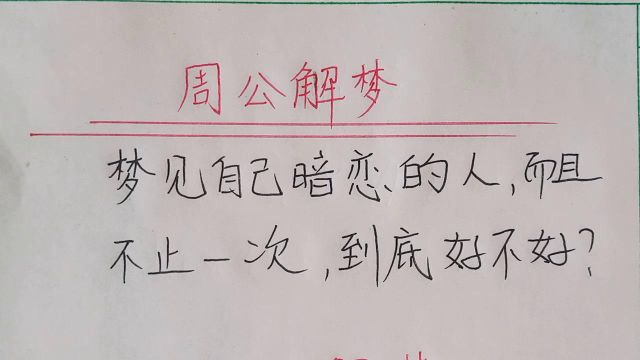 周公解梦
梦见自己暗恋的人,而且
不止一次,到底好不好?